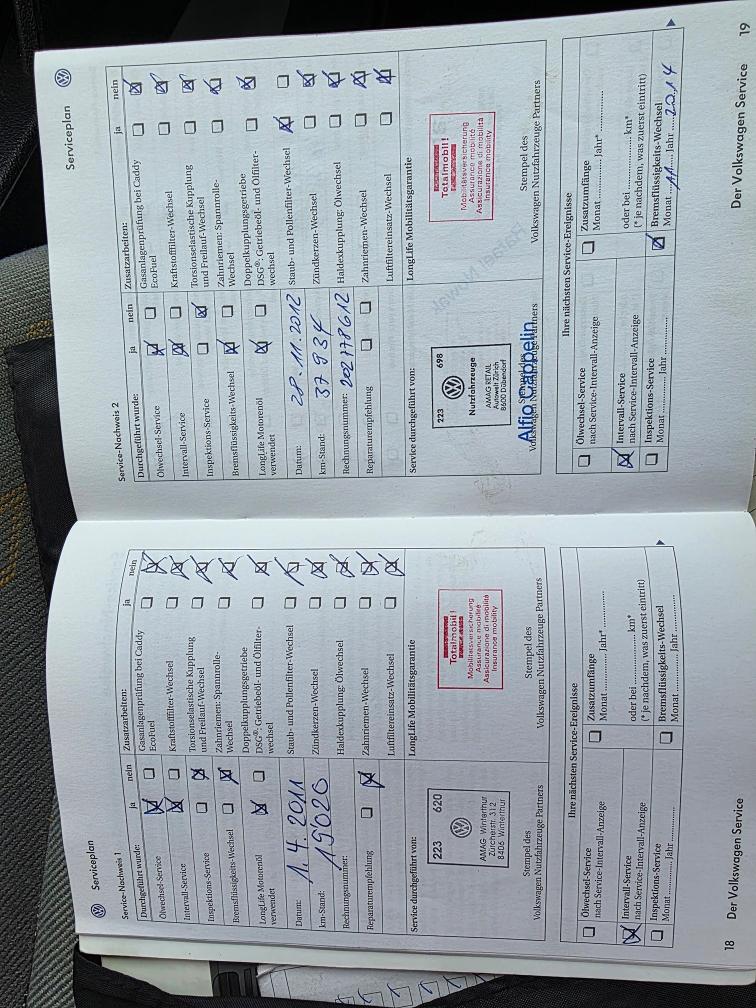 Serviceplan
Service-Nachweis 1
Durchgeführt wurde: ja nein
Ölwechsel-Service
Intervall-Service
Inspektions-Service
Bremsflüssigkeits-Wechsel
LongLife Motorenöl
verwendet
Datum: 1.4.2011
km-Stand: 19020
Rechnungsnummer:
Reparaturempfehlung
Zusatzarbeiten: ja nein
Gasanlagenprüfung bei Caddy
EcoFuel
Kraftstofffilter-Wechsel
Torsionselastische Kupplung
und Freilauf-Wechsel
Zahnriemen: Spannrolle-
Wechsel
Doppelkupplungsgetriebe
DSG®: Getriebeöl- und Ölfilter-
wechsel
Staub- und Pollenfilter-Wechsel
Zündkerzen-Wechsel
Haldexkupplung: Ölwechsel
Zahnriemen-Wechsel
Luftfiltereinsatz-Wechsel
Service durchgeführt von:
223 620
AMAG Winterthur
Zürcherstr. 312
8406 Winterthur
Stempel des
Volkswagen Nutzfahrzeuge Partners
LongLife Mobilitätsgarantie
Totalmobil!
Mobilitätsversicherung
Assurance mobilité
Assicurazione di mobilità
Insurance mobility
Stempel des
Volkswagen Nutzfahrzeuge Partners
Ihre nächsten Service-Ereignisse
Ölwechsel-Service
nach Service-Intervall-Anzeige
Intervall-Service
nach Service-Intervall-Anzeige
Inspektions-Service
Monat ............ Jahr ............
Zusatzumfänge
Monat ............ Jahr* ............
oder bei ............ km*
(* je nachdem, was zuerst eintritt)
Bremsflüssigkeits-Wechsel
Monat ............ Jahr ............
18 Der Volkswagen Service
Serviceplan
Service-Nachweis 2
Durchgeführt wurde: ja nein
Ölwechsel-Service
Intervall-Service
Inspektions-Service
Bremsflüssigkeits-Wechsel
LongLife Motorenöl
verwendet
Datum: 28.11.2012
km-Stand: 37934
Rechnungsnummer: 202778612
Reparaturempfehlung
Zusatzarbeiten: ja nein
Gasanlagenprüfung bei Caddy
EcoFuel
Kraftstofffilter-Wechsel
Torsionselastische Kupplung
und Freilauf-Wechsel
Zahnriemen: Spannrolle-
Wechsel
Doppelkupplungsgetriebe
DSG®: Getriebeöl- und Ölfilter-
wechsel
Staub- und Pollenfilter-Wechsel
Zündkerzen-Wechsel
Haldexkupplung: Ölwechsel
Zahnriemen-Wechsel
Luftfiltereinsatz-Wechsel
Service durchgeführt von:
223 698
Nutzfahrzeuge
AMAG RETAIL
Autowelt Zürich
8600 Dübendorf
Alfio Cappelin
Stempel des
Volkswagen Nutzfahrzeuge Partners
LongLife Mobilitätsgarantie
Totalmobil!
Mobilitätsversicherung
Assurance mobilité
Assicurazione di mobilità
Insurance mobility
Stempel des
Volkswagen Nutzfahrzeuge Partners
Ihre nächsten Service-Ereignisse
Ölwechsel-Service
nach Service-Intervall-Anzeige
Intervall-Service
nach Service-Intervall-Anzeige
Inspektions-Service
Monat ............ Jahr ............
Zusatzumfänge
Monat ............ Jahr* ............
oder bei ............ km*
(* je nachdem, was zuerst eintritt)
Bremsflüssigkeits-Wechsel
Monat 11 Jahr 2014
Der Volkswagen Service 19